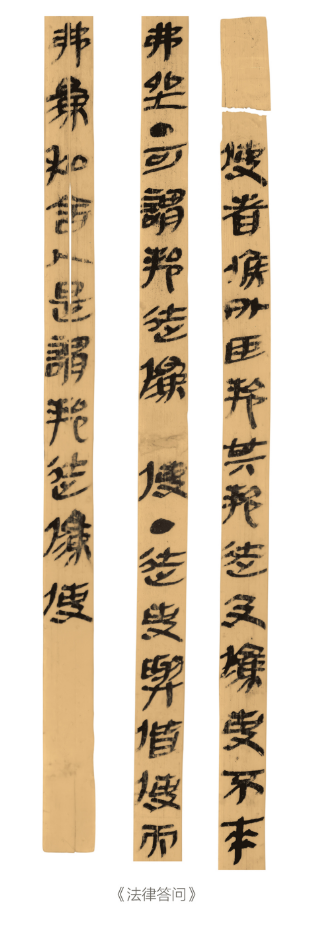 使者侯外臣邦其邦徒及偽吏不來
弗坐●可謂邦徒偽使●徒吏與偕使而
弗為私舍人是謂邦徒偽使
《法律答问》